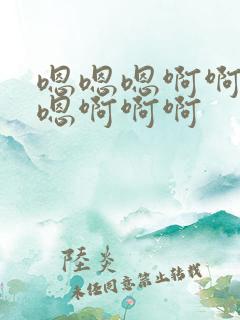 嗯嗯嗯啊啊
嗯啊啊啊
陸炎
未经同意禁止转载